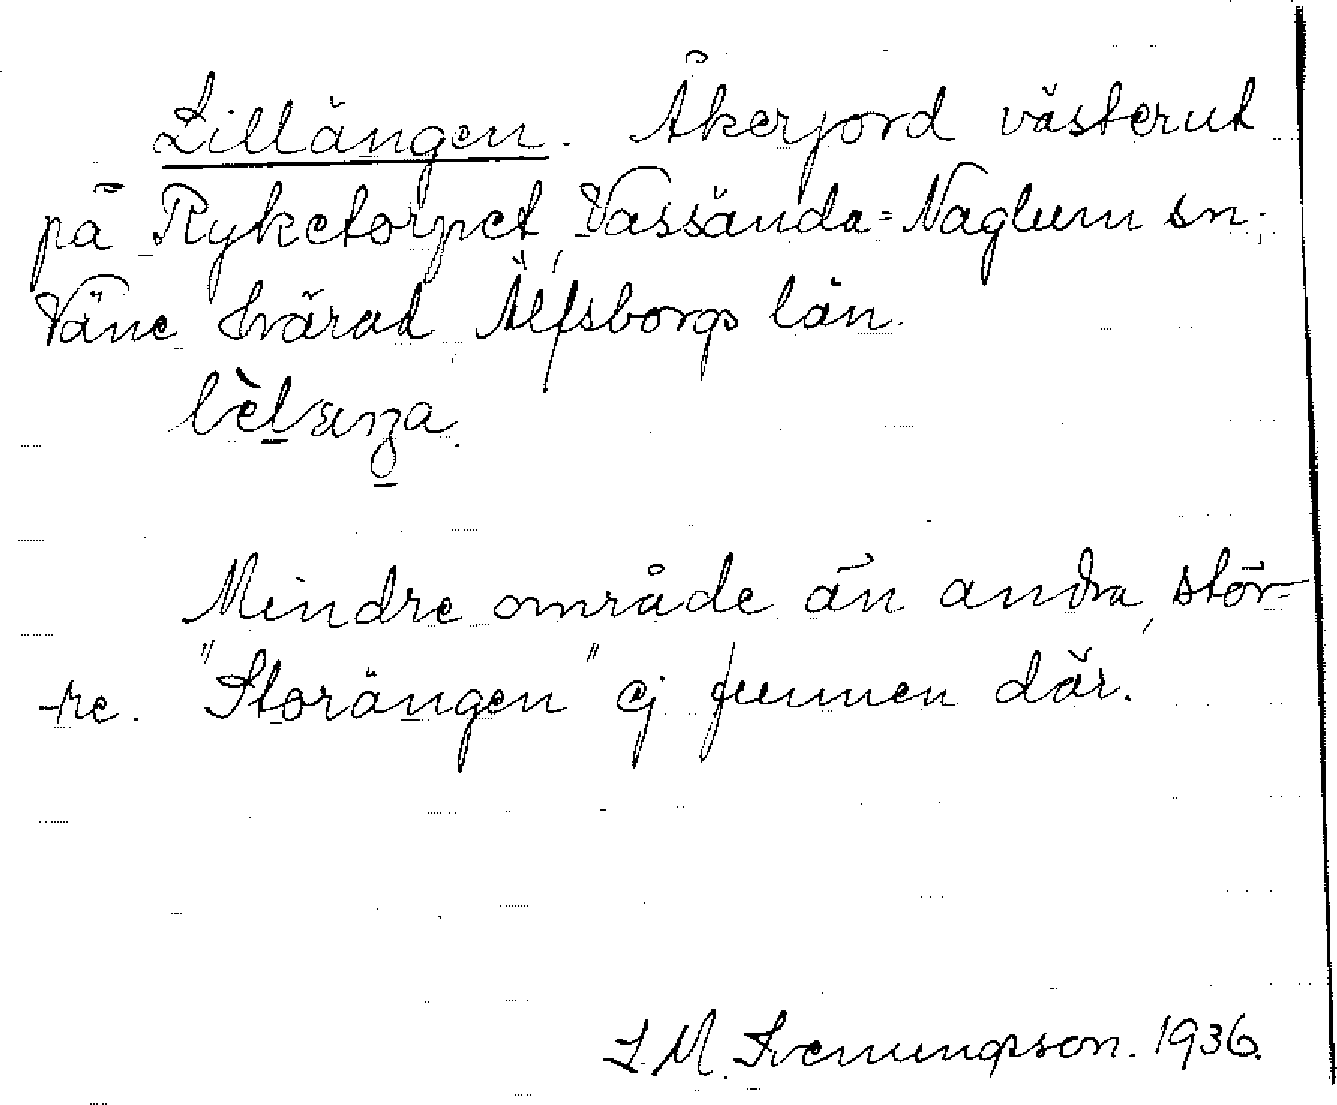 Lillängen. Åkerjord västerut
på Ryketorpet, Vassända=Naglum sn.
Väne härad Älfsborgs län.
Mindre område än andra, stör-
-re. "Storängen" ej funnen där.
I. M. Svenungsson. 1936.